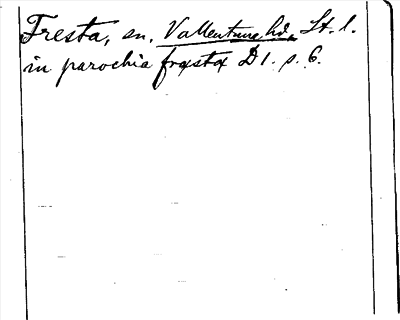 Fresta, sn, Vallentuna hd, St. l.
in parochia fræsta D 1. s. 6.